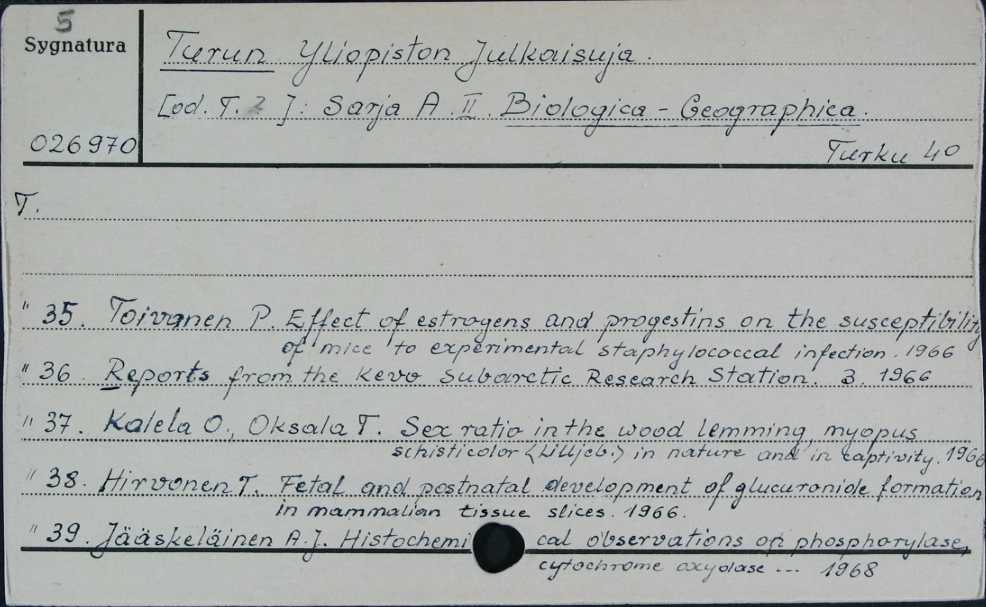 5
Sygnatura
026970
Turun Yliopiston Julkaisuja.
[od. T. 2 ]: Sarja A. II. Biologica - Geographica.
Turku 40
T.
" 35. Toivanen P. Effect of estrogens and progestins on the susceptibility
of mice to experimental staphylococcal infection. 1966
" 36. Reports from the Kevo Subarctic Research Station. 3. 1966
" 37. Kalela O., Oksala T. Sex ratio in the wood lemming, myopus
schisticolor (Lilljeb.) in nature and in captivity. 1966
" 38. Hirvonen T. Fetal and postnatal development of glucuronide formation
in mammalian tissue slices. 1966.
" 39. Jääskeläinen A.J. Histochemical observations on phosphorylase,
cytochrome oxydase ... 1968